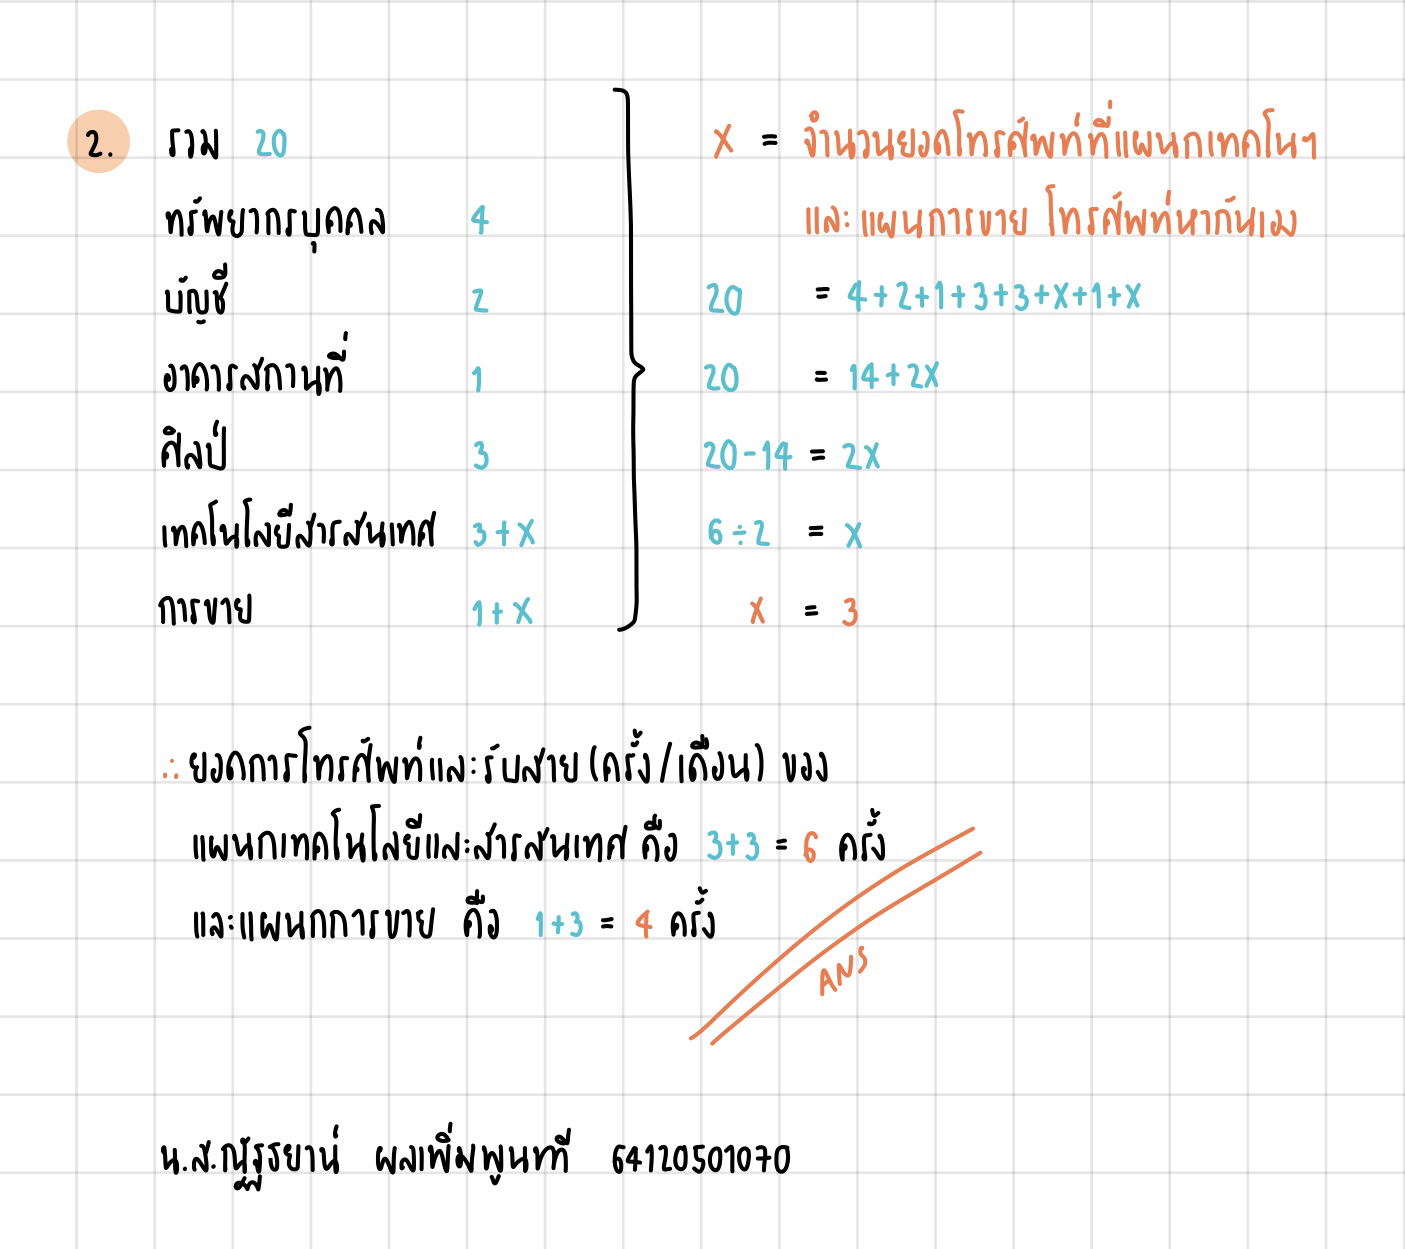 2. รวม 20
ทรัพยากรบุคคล 4
บัญชี 2
อาคารสถานที่ 1
ศิลป์ 3
เทคโนโลยีสารสันเทศ 3+x
การขาย 1+x
x = จำนวนยอดโทรศัพท์ที่แผนกเทคโนฯ
และแผนการขาย โทรศัพท์หากันเอง
20 = 4+2+1+3+3+x+1+x
20 = 14+2x
20-14 = 2x
6÷2 = x
x = 3
∴ ยอดการโทรศัพท์และรับสาย (ครั้ง/เดือน) ของ
แผนกเทคโนโลยีและสารสันเทศ คือ 3+3 = 6 ครั้ง
และแผนกการขาย คือ 1+3 = 4 ครั้ง
ANS
น.ส.ณัฏฐธยาน์ ผลเพิ่มพูนทวี 64120501070